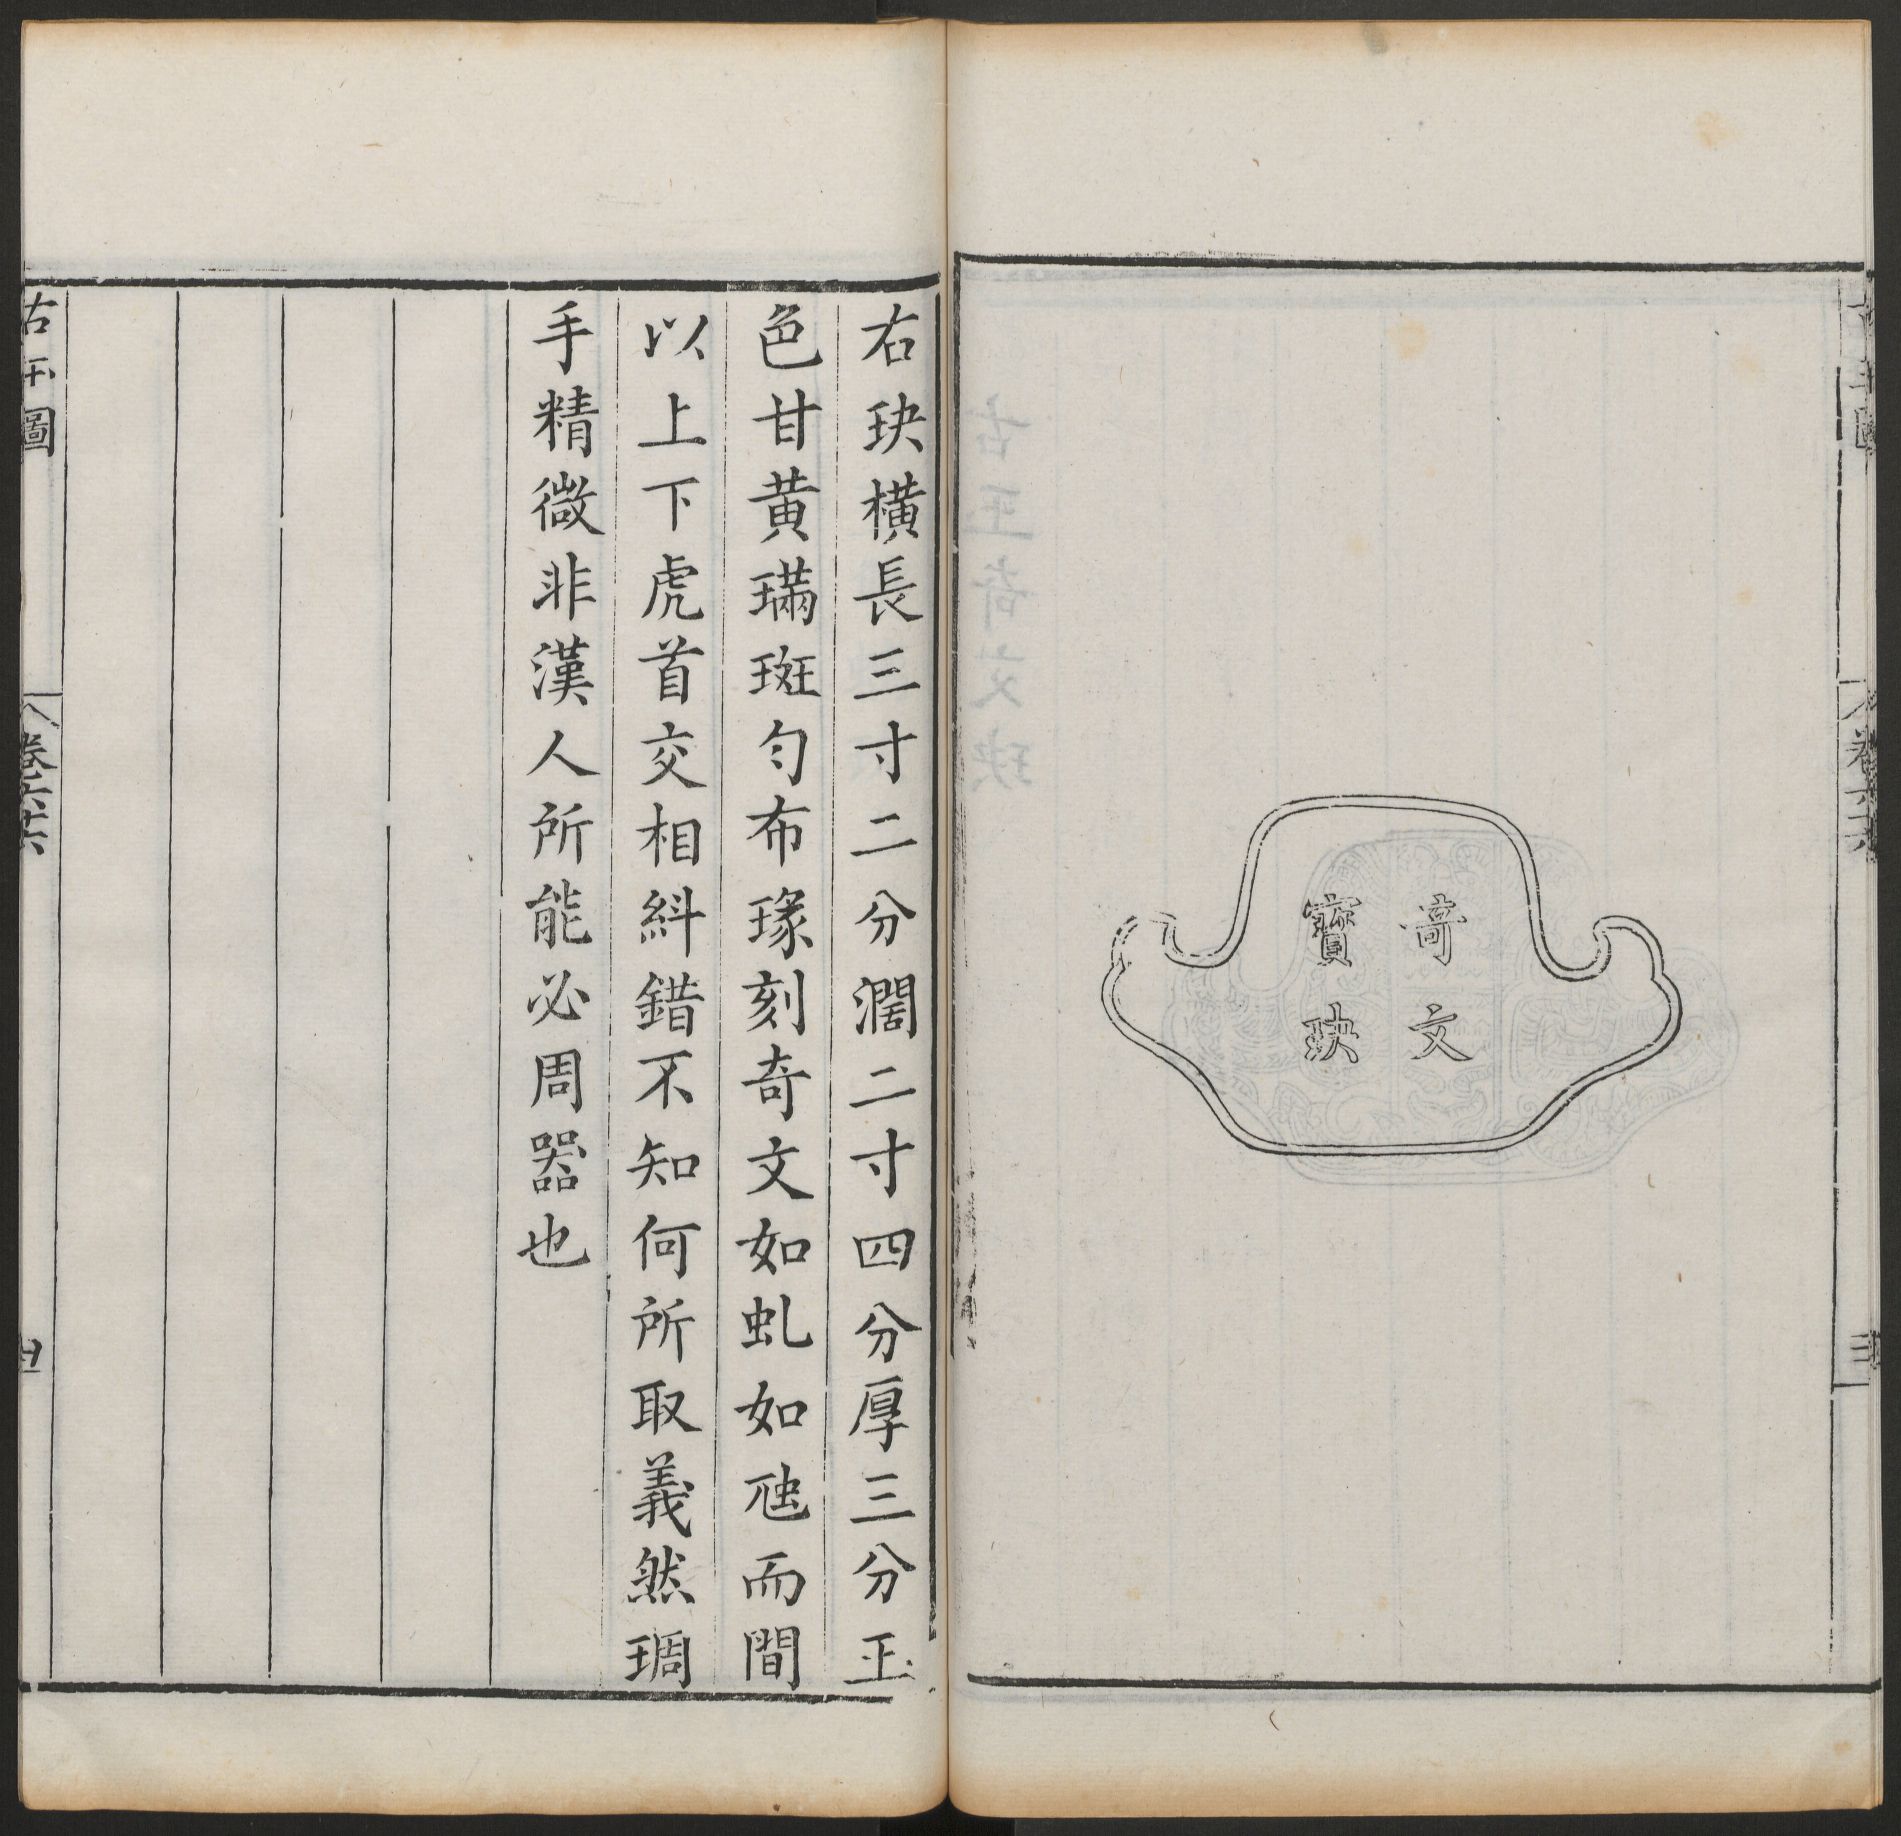 奇文
寶玦
右玦橫長三寸二分濶二寸四分厚三分玉
色甘黃璊斑勻布瑑刻奇文如虬如虺而間
以上下虎首交相糾錯不知何所取義然琱
手精微非漢人所能必周器也
古玉圖